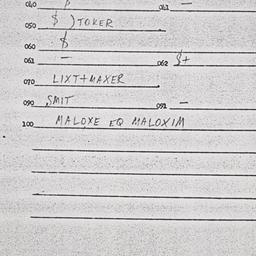 040 P 041 —
050 $ ) TOKER
060 $
061 — 062 $+
070 LIXT+MAXER
090 SMIT 091 —
100 MALOXE EQ MALOXIM